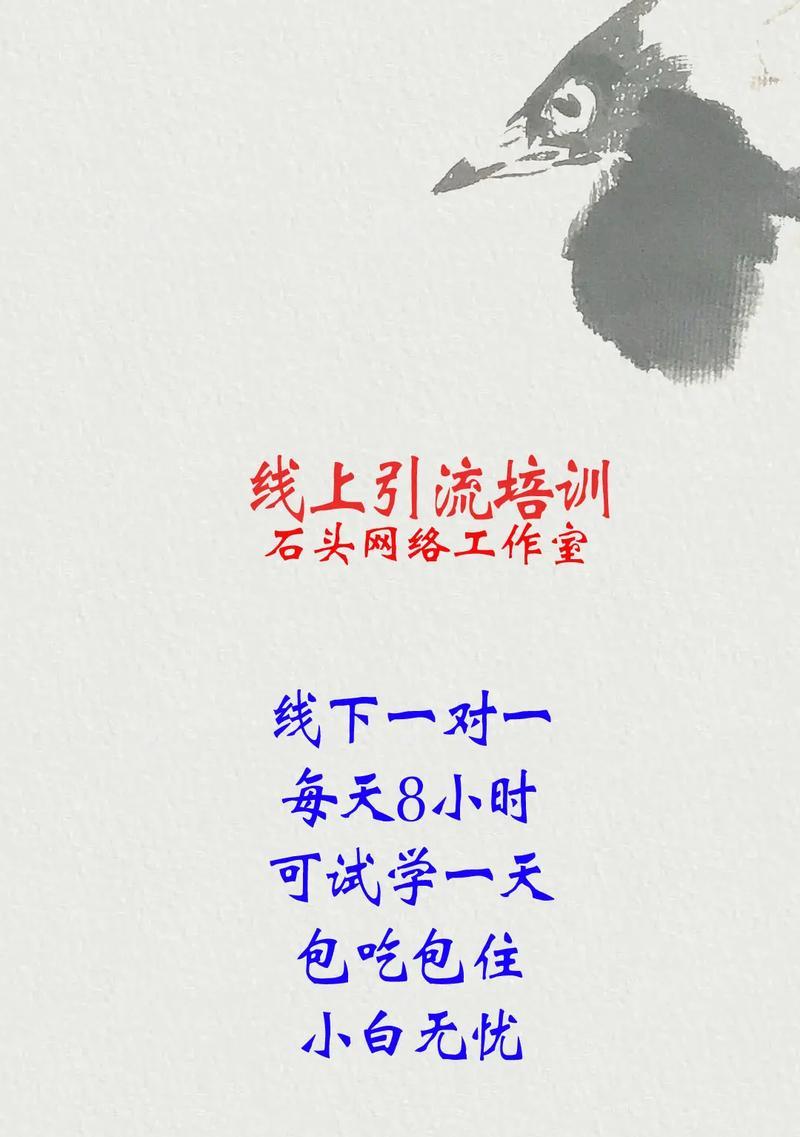 线上引流培训
石头网络工作室
线下一对一
每天8小时
可试学一天
包吃包住
小白无忧